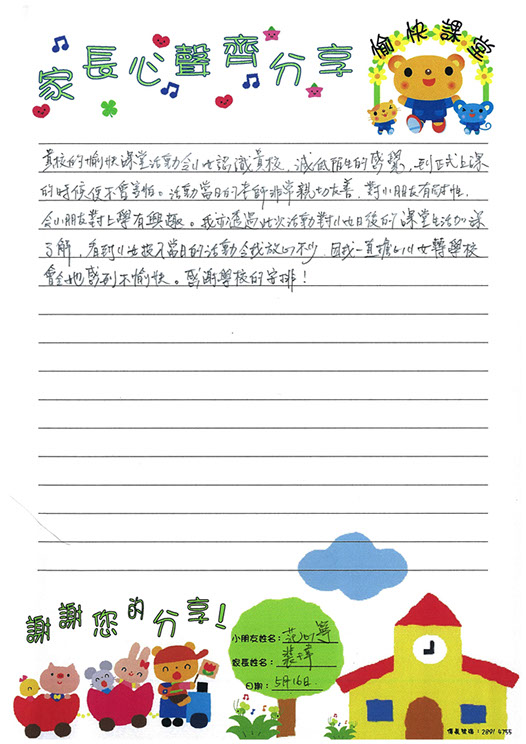 家長心聲齊分享
愉快課堂
貴校的愉快課堂活動令小女認識貴校，減低陌生的感覺，到正式上課
的時候便不會害怕。活動當日的老師非常親切友善，對小朋友有耐性，
令小朋友對上學有興趣。我亦透過此次活動對小女日後的課堂生活加深
了解，看到小女投入當日的活動令我放心不少，因我一直擔心小女轉學校
會令她感到不愉快。感謝學校的安排！
謝謝您的分享！
小朋友姓名：范
家長姓名：
日期：5月16日